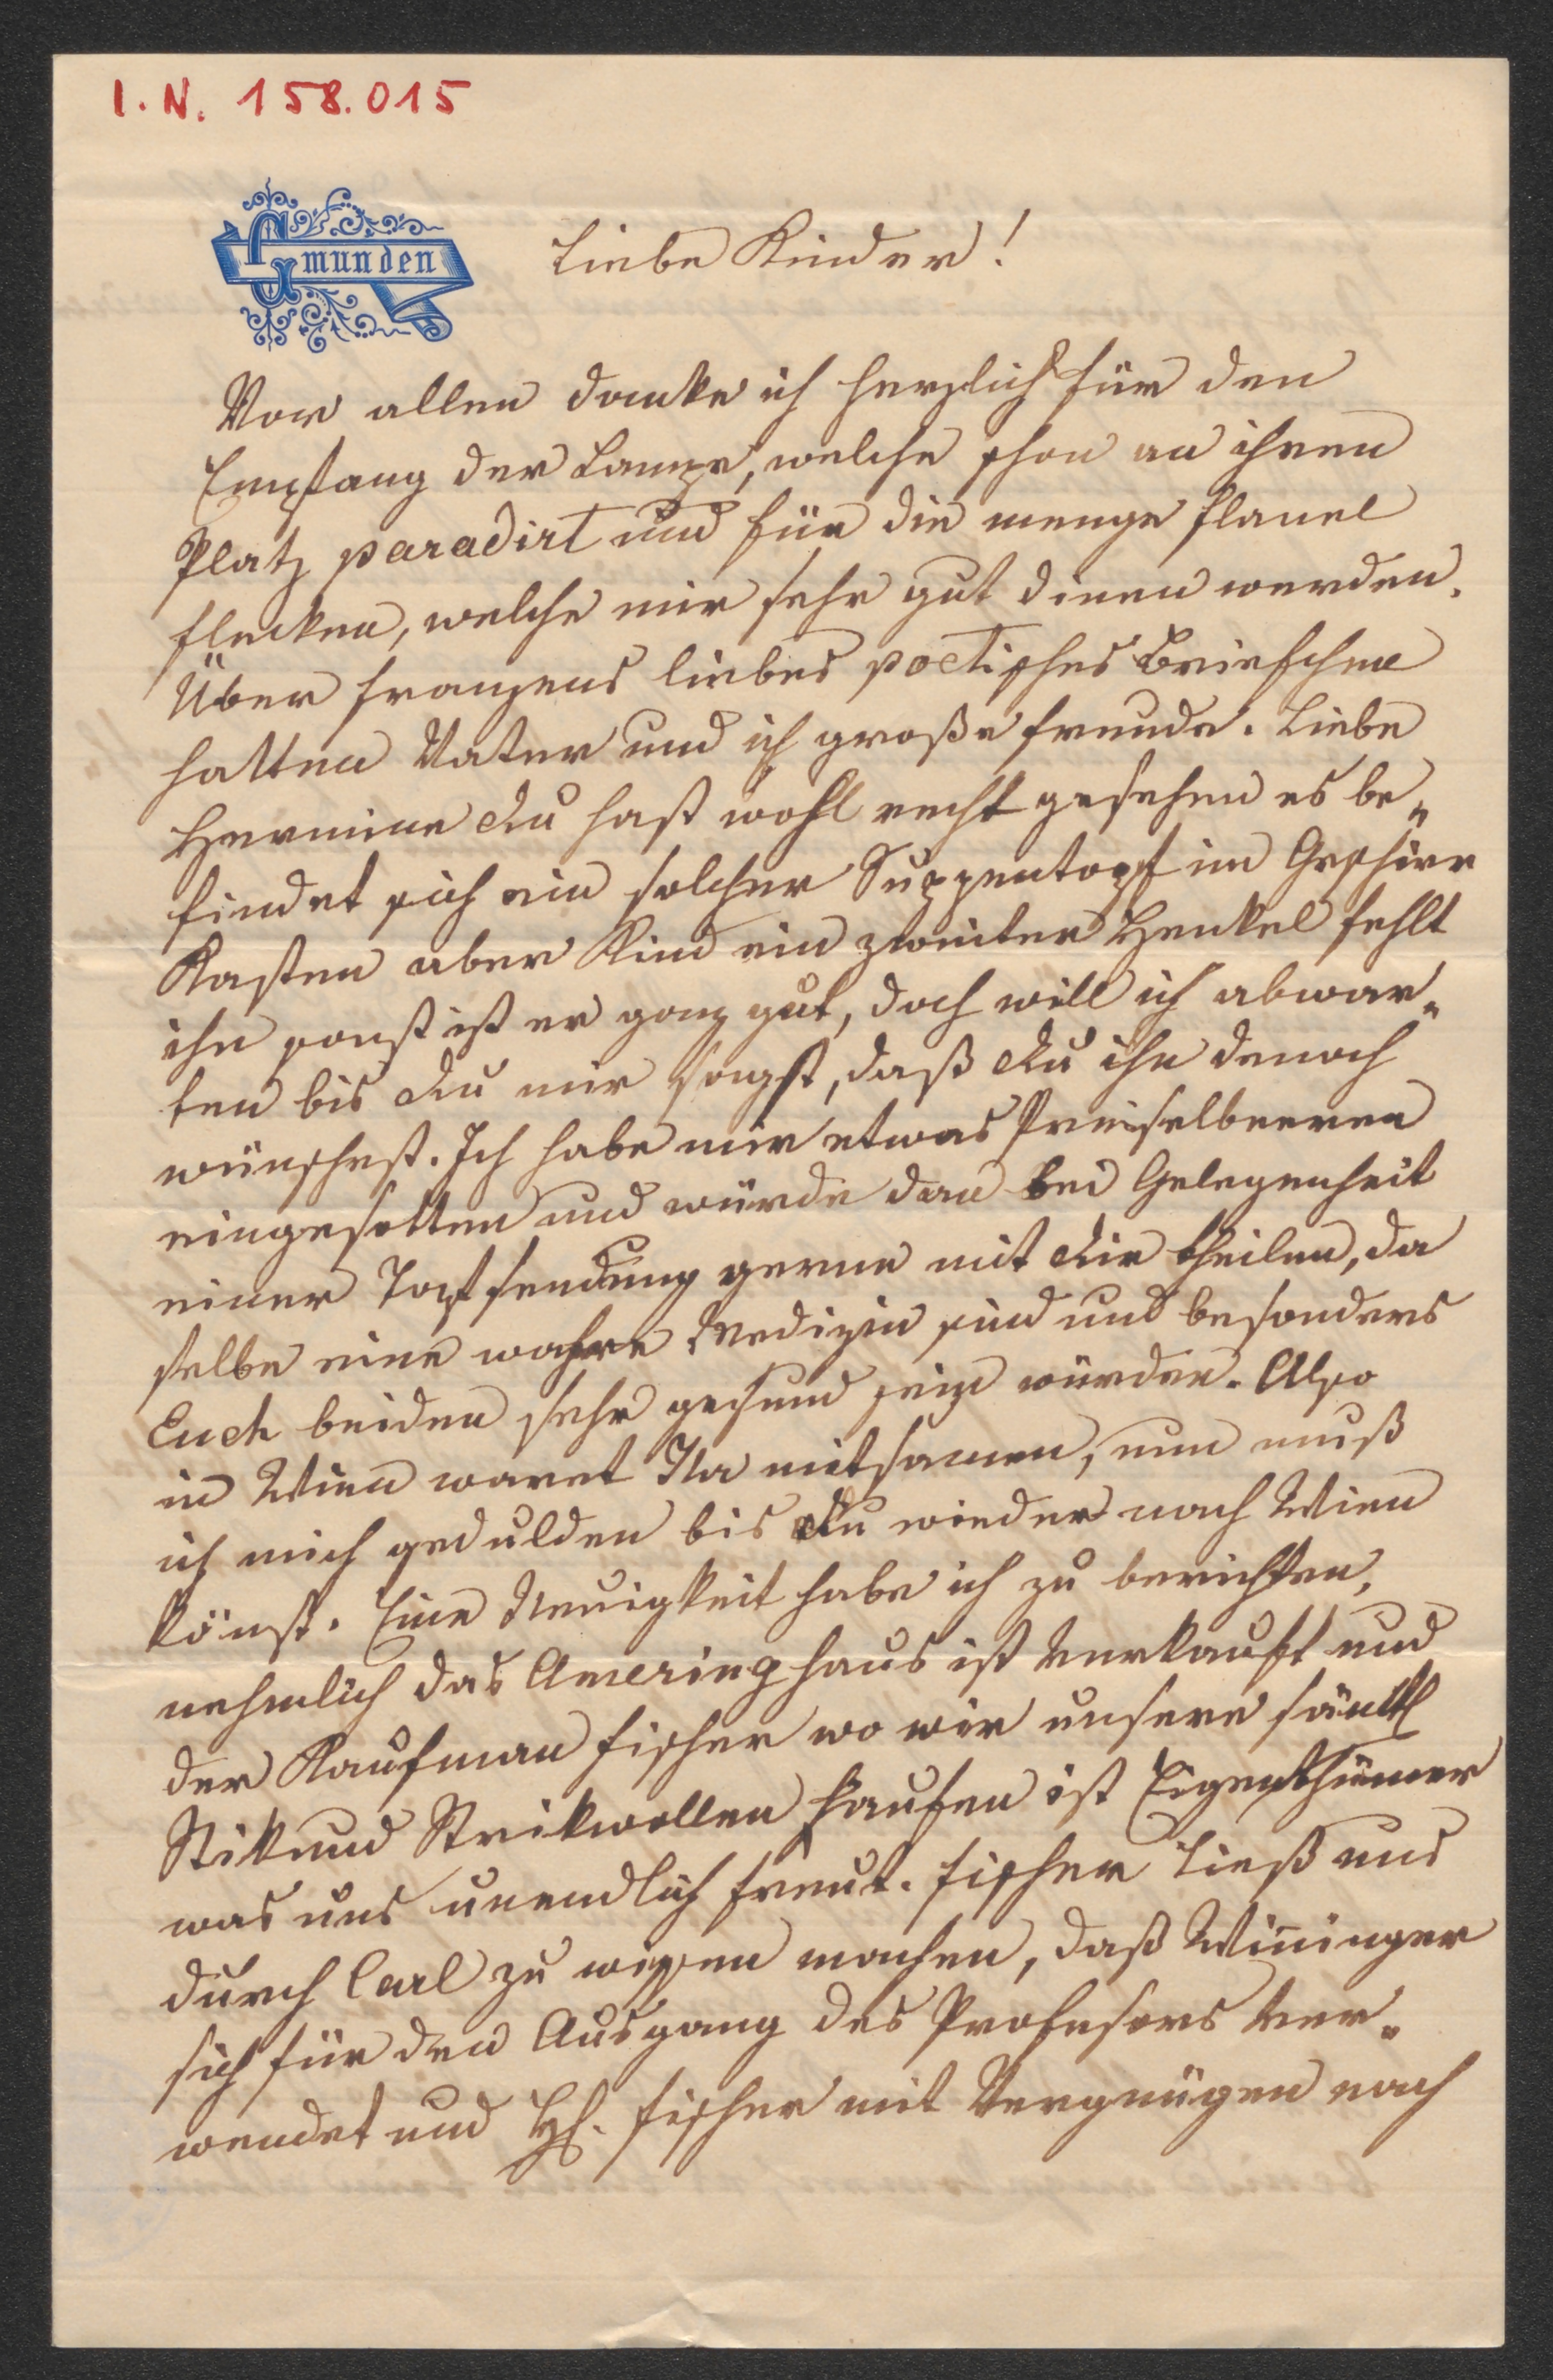 I. N. 158.015
Gmunden
Liebe Kinder!
Vor allen danke ich herzlich für den
Empfang der Lampe, welche schon an ihren
Platz paradirt und für die menge Flanel
flecken, welche mir sehr gut dienen werden.
Über Franzens liebes poetisches Briefchen
hatten Vater und ich große Freude. Liebe
Hermine Du hast wohl recht gesehen es be„
findet sich ein solcher Suppentopf im Geschirr
Kasten aber Kind ein zweiter Henkel fehlt
ihn sonst ist er ganz gut, doch will ich abwar„
ten bis Du mir sagst, daß Du ihn denoch
wünschest. Ich habe mir etwas Preiselbeeren
eingesotten und würde dan bei Gelegenheit
einer Topfsendung gerne mit Dir theilen, da
selbe eine wahre Medizin sind und besonders
Euch beiden sehr gesund sein würden. Also
in Wien waret Ihr mitsamen, nun muß
ich mich gedulden bis Du wieder nach Wien
könst. Eine Neuigkeit habe ich zu berichten,
nehmlich das Ameringhaus ist verkauft und
der Kaufman Fischer wo wir unsere sämtl
Stik und Strikwollen kaufen ist Eigenthümer
was uns unendlich freut. Fischer ließ uns
durch Carl zu wissen machen, daß Wininger
sich für den Ausgang des Profesors ver„
wendet und H. Fischer mit Vergnügen nach